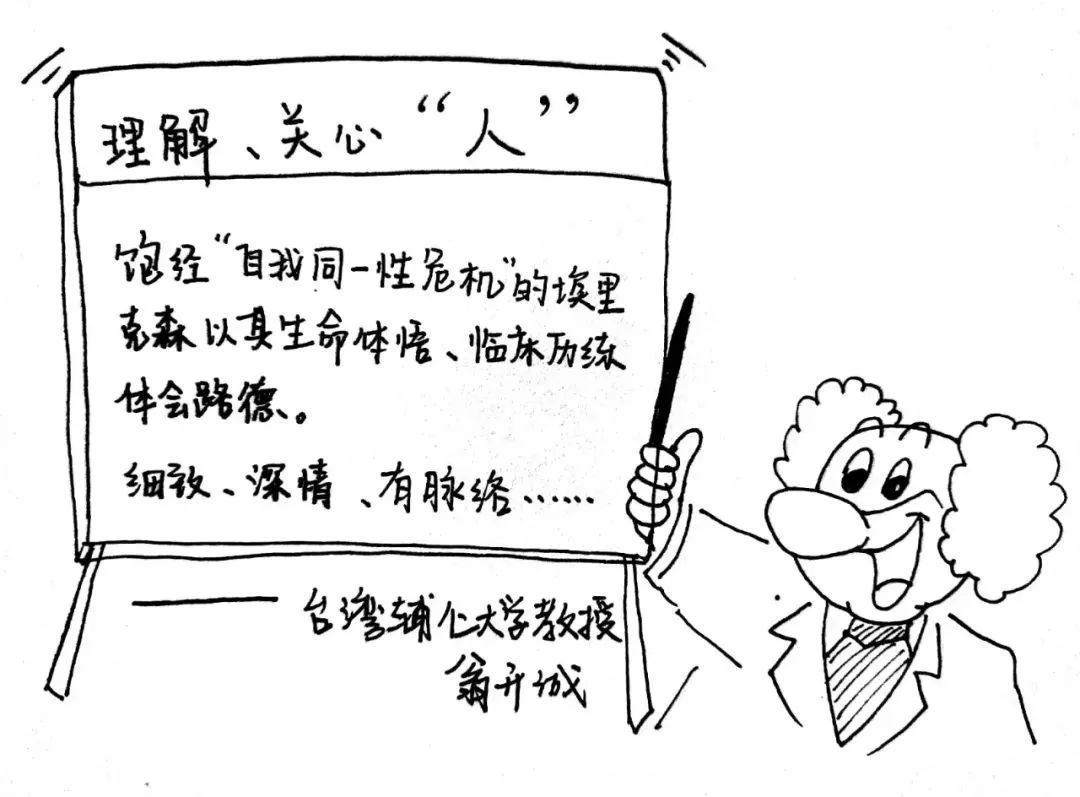 理解、关心“人”
饱经“自我同一性危机”的埃里
克森以其生命体悟、临床历练
体会路德。
细致、深情、有脉络……
——台湾辅仁大学教授
翁开诚